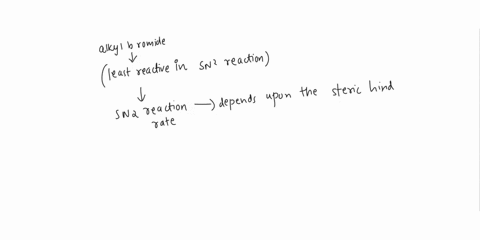 alkyl bromide
↓
(least reactive in SN2 reaction)
↓
SN2 reaction → depends upon the steric hind
rate